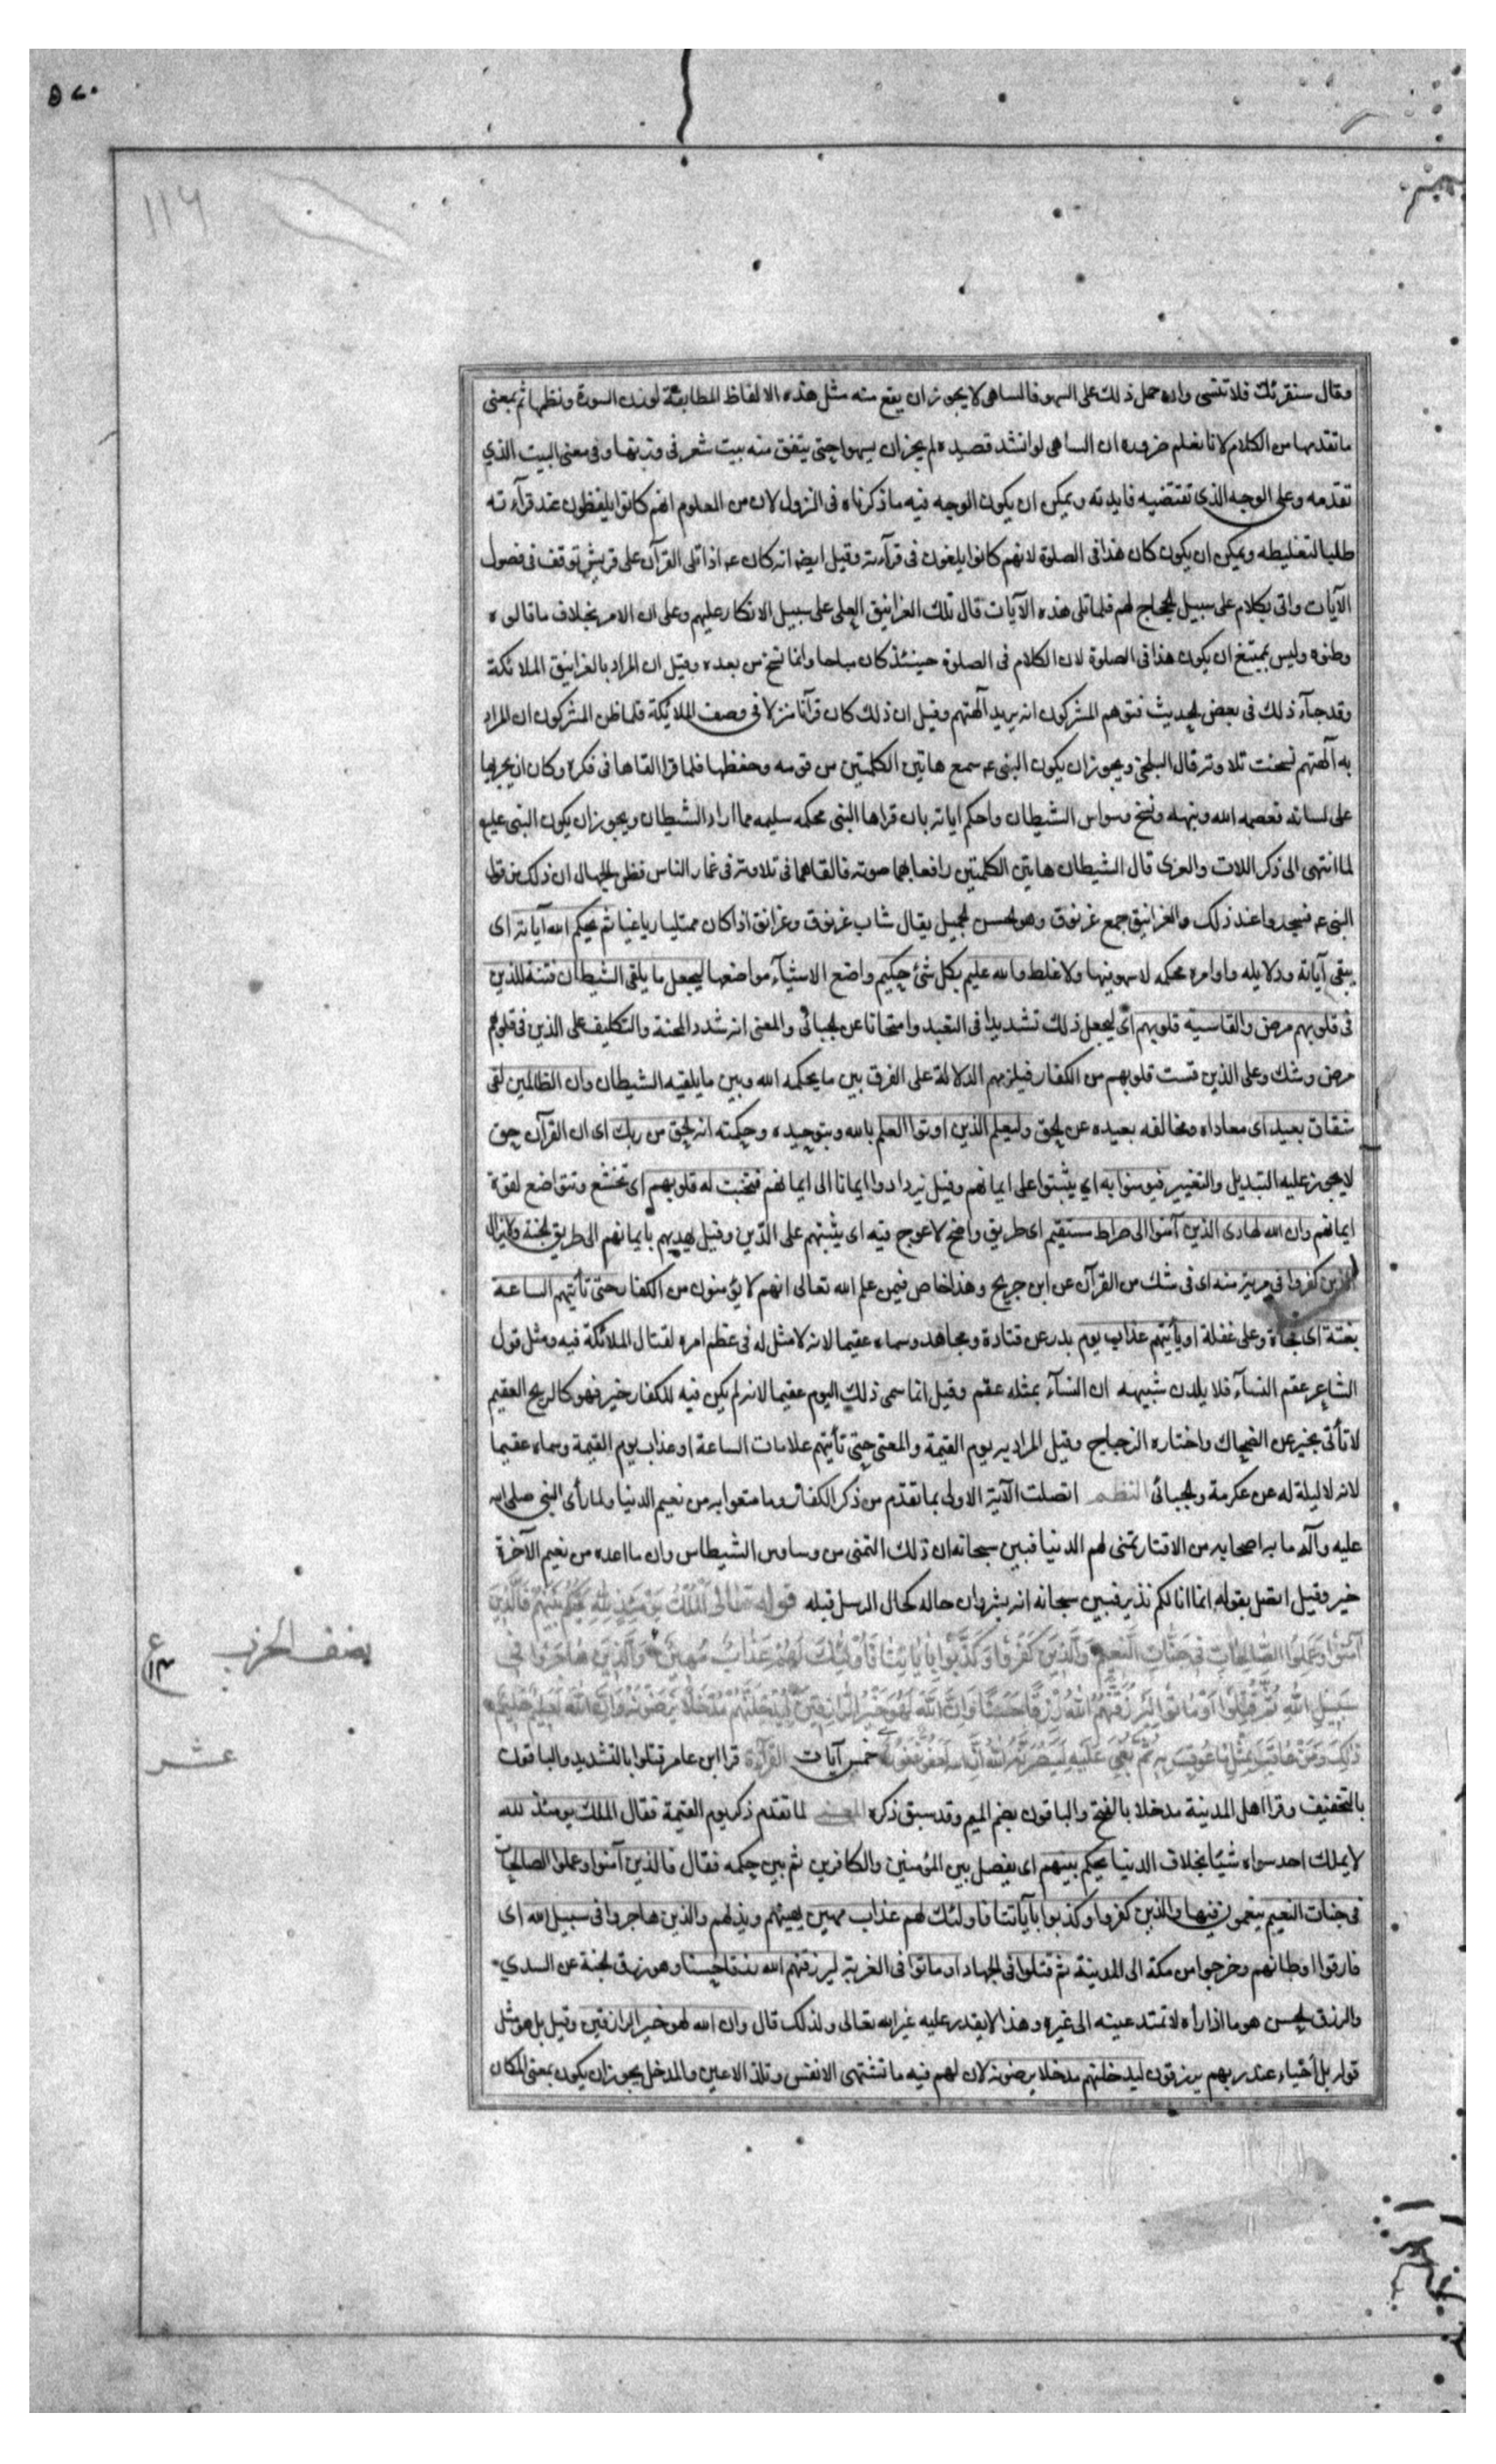 وقال سنقرئك فلا تنسى وان حمل ذلك على السهو فالساهى لا يجوز ان يقع منه مثل هذه الالفاظ المطابقة لوزن السورة ونظمها ثم بمعنى
ما تقدمها من الكلام لانا نعلم ضرورة ان الساهى لو انشد قصيدة لم يجز ان يسهوا حتى يتفق منه بيت شعر فى وزنها وفى معنى البيت الذي
تقدمه وعلى الوجه الذى تقتضيه فايدته ويمكن ان يكون الوجه فيه ما ذكرناه فى النزول لان من المعلوم انهم كانوا يلغطون عند قرآءته
طلبا لتغليطه ويمكن ان يكون كان هذا فى الصلوة لانهم كانوا يلغون فى قرآءته وقيل ايضا انه كان عم اذا تلى القرآن على قريش توقف فى فصول
الآيات واتى بكلام على سبيل الحجاج لهم فلما تلى هذه الآيات قال تلك الغرانيق العلى على سبيل الانكار عليهم وعلى ان الامر بخلاف ما قالوه
وظنوه وليس بممتنع ان يكون هذا فى الصلوة لان الكلام فى الصلوة حينئذ كان مباحا وانما نسخ من بعده وقيل ان المراد بالغرانيق الملائكة
وقد جآء ذلك فى بعض الحديث فتوهم المشركون انه يريد آلهتهم وقيل ان ذلك كان قرآنا منزلا فى وصف الملائكة فلما ظن المشركون ان المراد
به آلهتهم نسخت تلاوته قال البلخى ويجوز ان يكون النبى عم سمع هاتين الكلمتين من قومه وحفظها فلما قرا القاها فى فكره وكان ان يجريها
على لسانه فعصمه الله ونبهه ونسخ وسواس الشيطان واحكم اياته بان قراها النبى محكمه سليمه مما اراد الشيطان ويجوز ان يكون النبى عليه
لما انتهى الى ذكر اللات والعزى قال الشيطان هاتين الكلمتين رافعا بهما صوته فالقاهما فى تلاوته فى غمار الناس فظن الجهال ان ذلك من قول
النبى عم فسجدوا عند ذلك والغرانيق جمع غرنوق وهو الحسن الجميل يقال شاب غرنوق وغرانق اذا كان ممتليا ريا غيا ثم يحكم الله آياته اى
يبقى آياته ودلايله واوامره محكمه لا سهو فيها ولا غلط والله عليم بكل شئ حكيم واضع الاشيآء مواضعها ليجعل ما يلقى الشيطان فتنة للذين
فى قلوبهم مرض والقاسية قلوبهم اى ليجعل ذلك تشديدا فى التعبد وامتحانا عن الجبائى والمعنى انه شدد المحنة والتكليف على الذين فى قلوبهم
مرض وشك وعلى الذين قست قلوبهم من الكفار فيلزمهم الدلالة على الفرق بين ما يحكمه الله وبين ما يلقيه الشيطان وان الظالمين لفى
شقاق بعيد اى معاداه ومخالفه بعيده عن الحق وليعلم الذين اوتوا العلم بالله وبتوحيده وحكمته انه الحق من ربك اى ان القرآن حق
لا يجوز عليه التبديل والتغيير فيومنوا به اي يثبتوا على ايمانهم وقيل يزدادوا ايمانا الى ايمانهم فتخبت له قلوبهم اى تخشع وتتواضع لقوة
ايمانهم وان الله لهادى الذين آمنوا الى صراط مستقيم اى طريق واضح لا عوج فيه اى يثبتهم على الدّين وقيل يهديهم بايمانهم الى طريق الجنة ولا يزال
الذين كفروا فى مرية منه اى فى شك من القرآن عن ابن جريج وهذا خاص فيمن علم الله تعالى انهم لا يؤمنون من الكفار حتى تأتيهم الساعة
بغتة اى فجاة وعلى غفلة او يأتيهم عذاب يوم بدر عن قتادة ومجاهد وسماه عقيما لانه لا مثل له فى عظم امره لقتال الملائكة فيه ومثل قول
الشاعر عقم النسآء فلا يلدن شبيهه ان النسآء بمثله عقم وقيل انما سمى ذلك اليوم عقيما لانه لم يكن فيه للكفار خير فهو كالريح العقيم
لا تأتى بخير عن الضحاك واختاره الزجاج وقيل المراد به يوم القيمة والمعنى حتى تأتيهم علامات الساعة او عذاب يوم القيمة وسماه عقيما
لانه لا ليلة له عن عكرمة والجبائى النظم اتصلت الآية الاولى بما تقدم من ذكر الكفار وما متعوا به من نعيم الدنيا ولما رأى النبى صلى الله
عليه وآله ما به اصحابه من الاقتار تمنى لهم الدنيا فبين سبحانه ان ذلك التمنى من وساوس الشيطاس وان ما اعده من نعيم الآخرة
خير وقيل اتصل بقوله انما انا لكم نذير فبين سبحانه انه بشر وان حاله كحال الرسل قبله قوله تعالى اَلْمُلْكُ يَوْمَئِذٍ لِلّٰهِ يَحْكُمُ بَيْنَهُمْ فَالَّذِينَ
آمَنُوا وَعَمِلُوا الصَّالِحَاتِ فِى جَنَّاتِ النَّعِيمِ وَالَّذِينَ كَفَرُوا وَكَذَّبُوا بِآيَاتِنَا فَأُولٰئِكَ لَهُمْ عَذَابٌ مُهِينٌ وَالَّذِينَ هَاجَرُوا فِى
سَبِيلِ اللهِ ثُمَّ قُتِلُوا أَوْ مَاتُوا لَيَرْزُقَنَّهُمُ اللهُ رِزْقًا حَسَنًا وَإِنَّ اللهَ لَهُوَ خَيْرُ الرَّازِقِينَ لَيُدْخِلَنَّهُمْ مُدْخَلًا يَرْضَوْنَهُ وَإِنَّ اللهَ لَعَلِيمٌ حَلِيمٌ
ذٰلِكَ وَمَنْ عَاقَبَ بِمِثْلِ مَا عُوقِبَ بِهِ ثُمَّ بُغِىَ عَلَيْهِ لَيَنْصُرَنَّهُ اللهُ إِنَّ اللهَ لَعَفُوٌّ غَفُورٌ خمس آيات القرآءة قرا ابن عامر قتلوا بالتشديد والباقون
بالتخفيف وقرا اهل المدينة مدخلا بالفتح والباقون بضم الميم وقد سبق ذكره المعنى لما تقدم ذكر يوم القيمة فقال الملك يومئذ لله
لا يملك احد سواه شيئا بخلاف الدنيا يحكم بينهم اى يفصل بين المؤمنين والكافرين ثم بين حكمه فقال فالذين آمنوا وعملوا الصالحات
فى جنات النعيم ينعمون فيها والذين كفروا وكذبوا بآياتنا فاولئك لهم عذاب مهين يهينهم ويذلهم والذين هاجروا فى سبيل الله اى
فارقوا اوطانهم وخرجوا من مكة الى المدينة ثم قتلوا فى الجهاد او ماتوا فى الغربة ليرزقنهم الله رزقا حسنا وهو رزق الجنة عن السدي
والرزق الحسن هو ما اذا رأه لا تمتد عينه الى غيره وهذا لا يقدر عليه غير الله تعالى ولذلك قال وان الله لهو خير الرازقين وقيل بل هو مثل
قوله بل أحياء عند ربهم يرزقون ليدخلنهم مدخلا يرضونه لان لهم فيه ما تشتهى الانفس وتلذ الاعين والمدخل يجوز ان يكون بمعنى المكان
نصف الحزب
عشر
١١٦